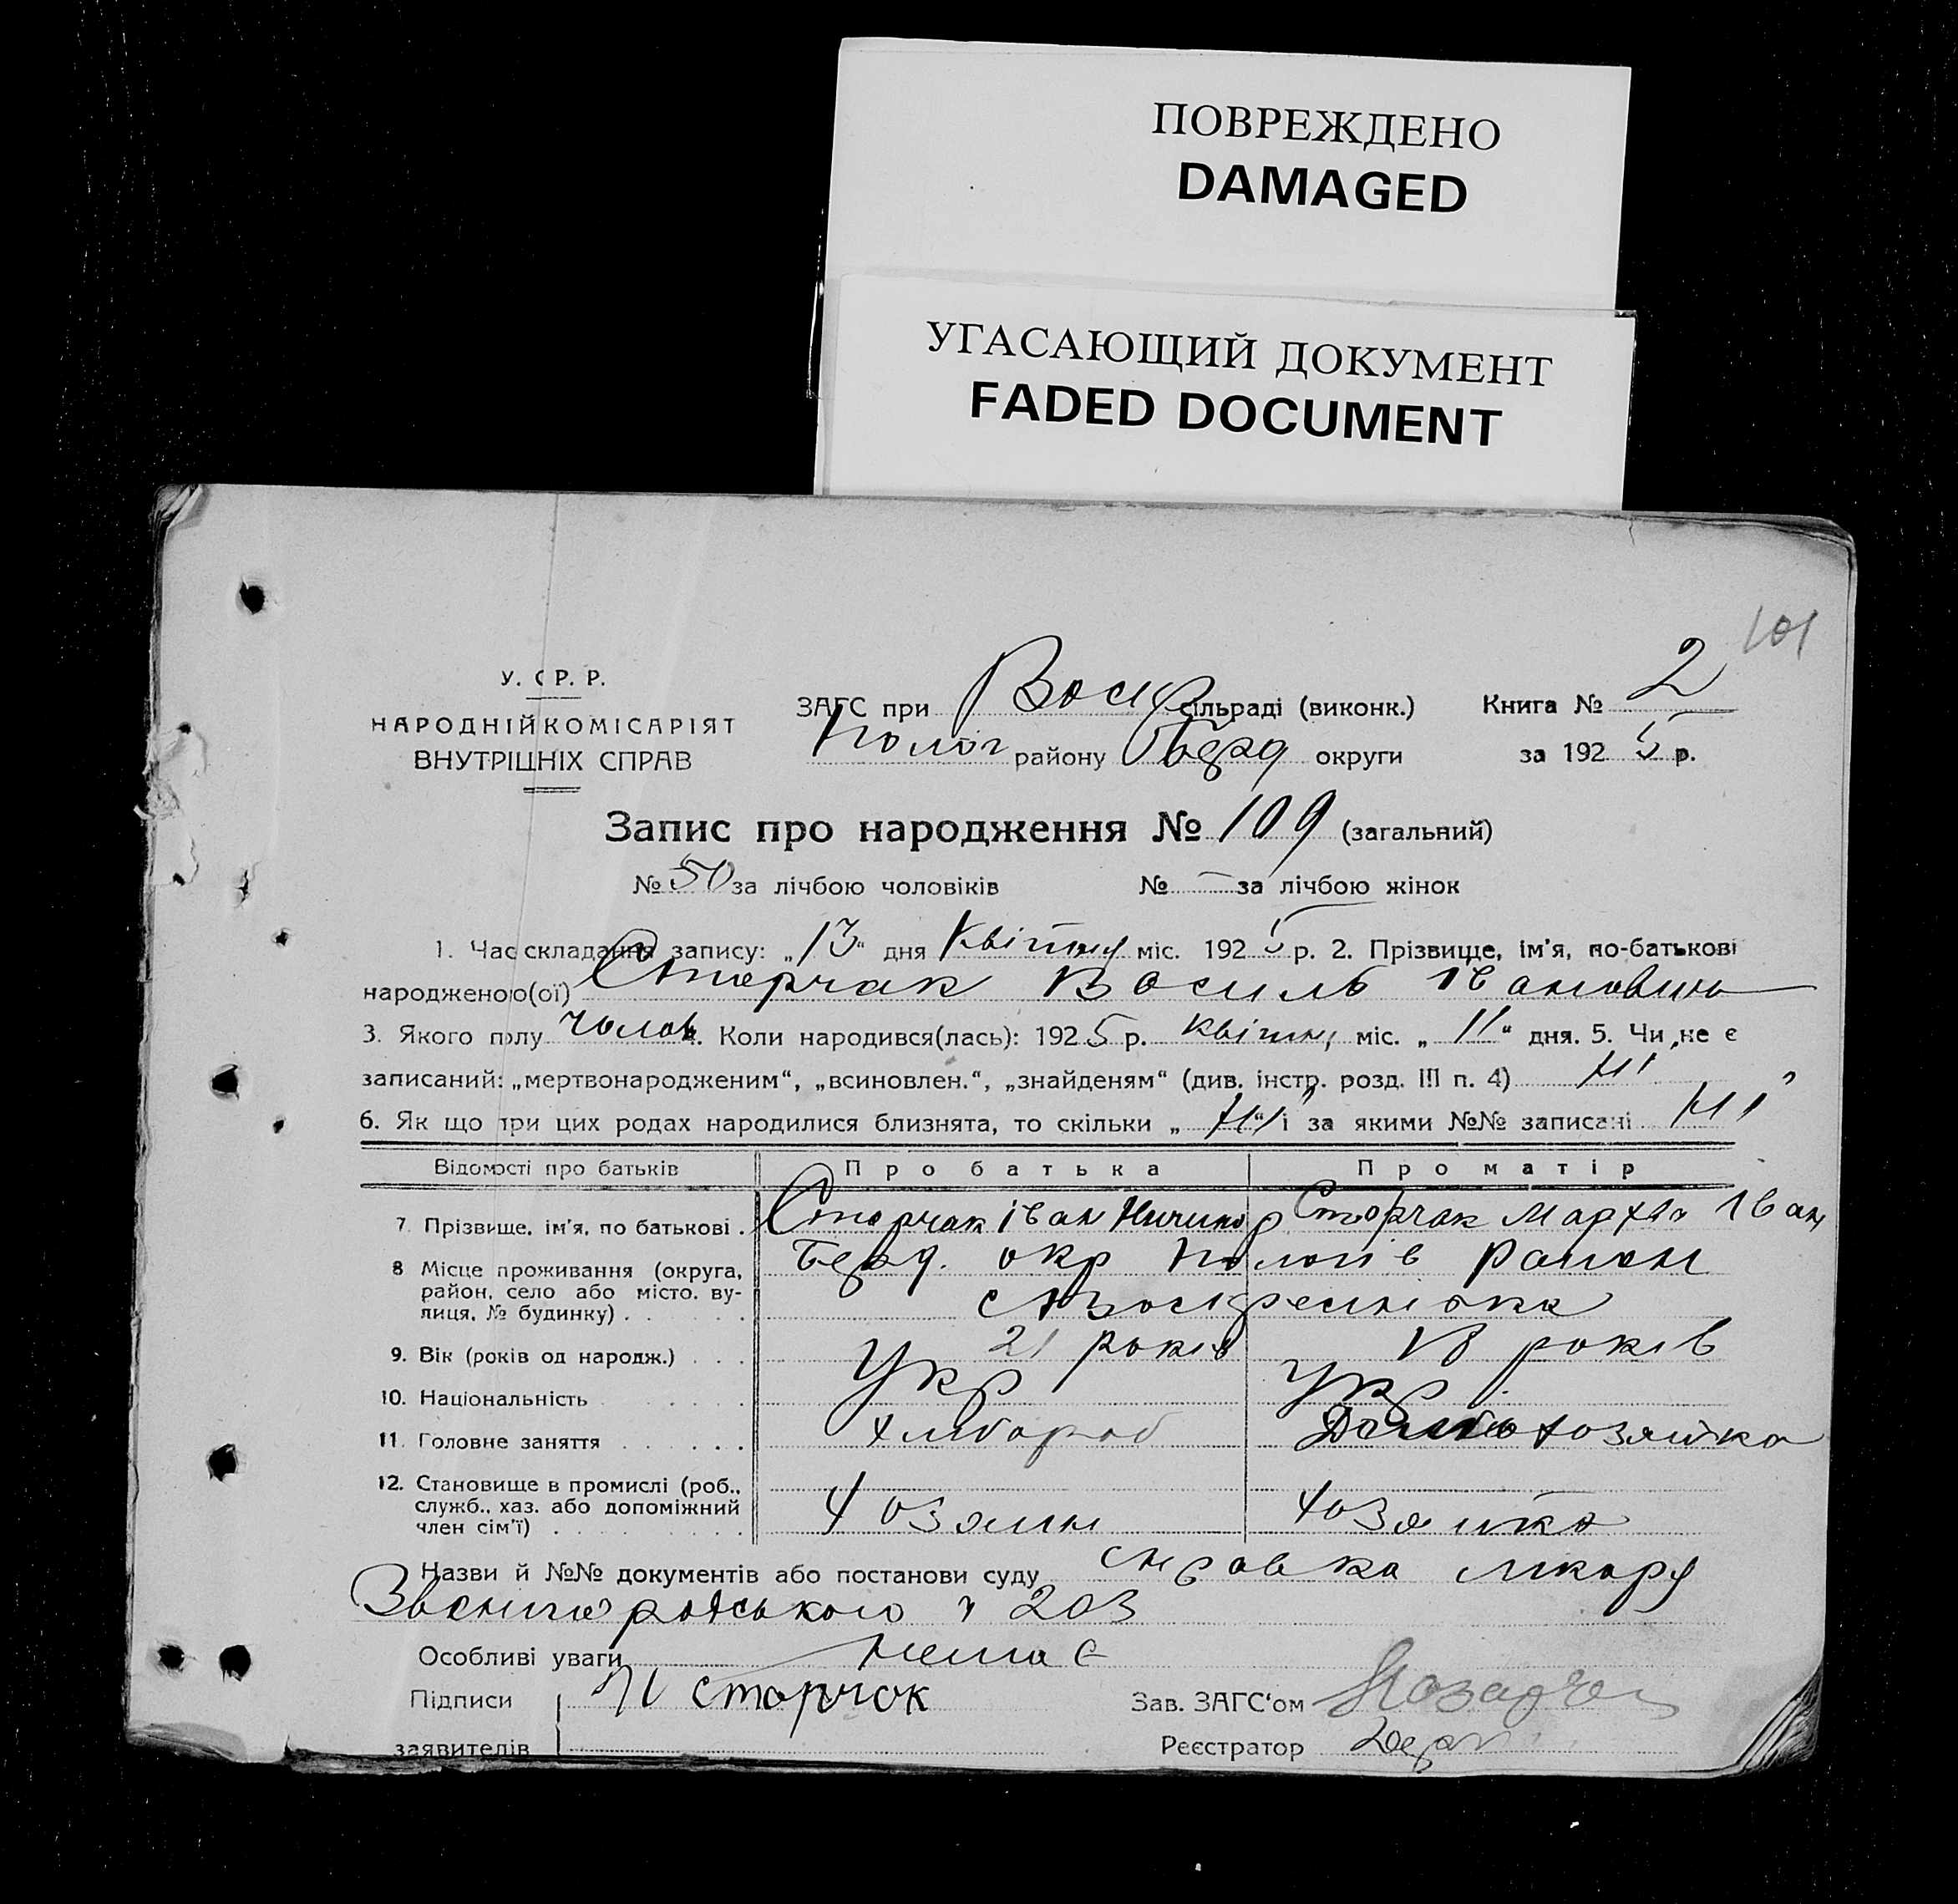 ПОВРЕЖДЕНО
DAMAGED
УГАСАЮЩИЙ ДОКУМЕНТ
FADED DOCUMENT
101
У. С Р. Р.
НАРОДНІЙ КОМІСАРІЯТ
ВНУТРІШНІХ СПРАВ
ЗАГС при Воскр сільраді (виконк.) Книга № 2
Полог району Берд округи за 1925 р.
Запис про народження № 109 (загальний)
№ 50 за лічбою чоловіків № — за лічбою жінок
1. Час складання запису: „13“ дня Квітня міс. 1925 р. 2. Прізвище, ім'я, по-батькові
народженого(ої) Сторчак Василь Іванович
3. Якого полу чолов. Коли народився(лась): 1925 р. квітня міс. „11“ дня. 5. Чи не є
записаний: „мертвонародженим“, „всиновлен.“, „знайденям“ (див. інстр. розд. III п. 4) ні
6. Як що три цих родах народилися близнята, то скільки „ні“ і за якими №№ записані ні
Відомості про батьків Про батька Про матір
7. Прізвище, ім'я, по батькові . Сторчак Іван Ничипор Сторчак Марфа Іван
8 Місце проживання (округа, район, село або місто, вулиця, № будинку) . Берд. окр Пологів район
с Воскресенівка
9. Вік (років од народж.) . . . 21 років 18 років
10. Національність Укр Укр.
11. Головне заняття хлібороб Домохозяйка
12. Становище в промислі (роб., служб., хаз. або допоміжний член сім'ї) . хозяин хозяйка
Назви й №№ документів або постанови суду справка лікаря
Звенигородського № 203
Особливі уваги немає
Підписи Сторчок Зав. ЗАГС'ом
заявителів Реєстратор